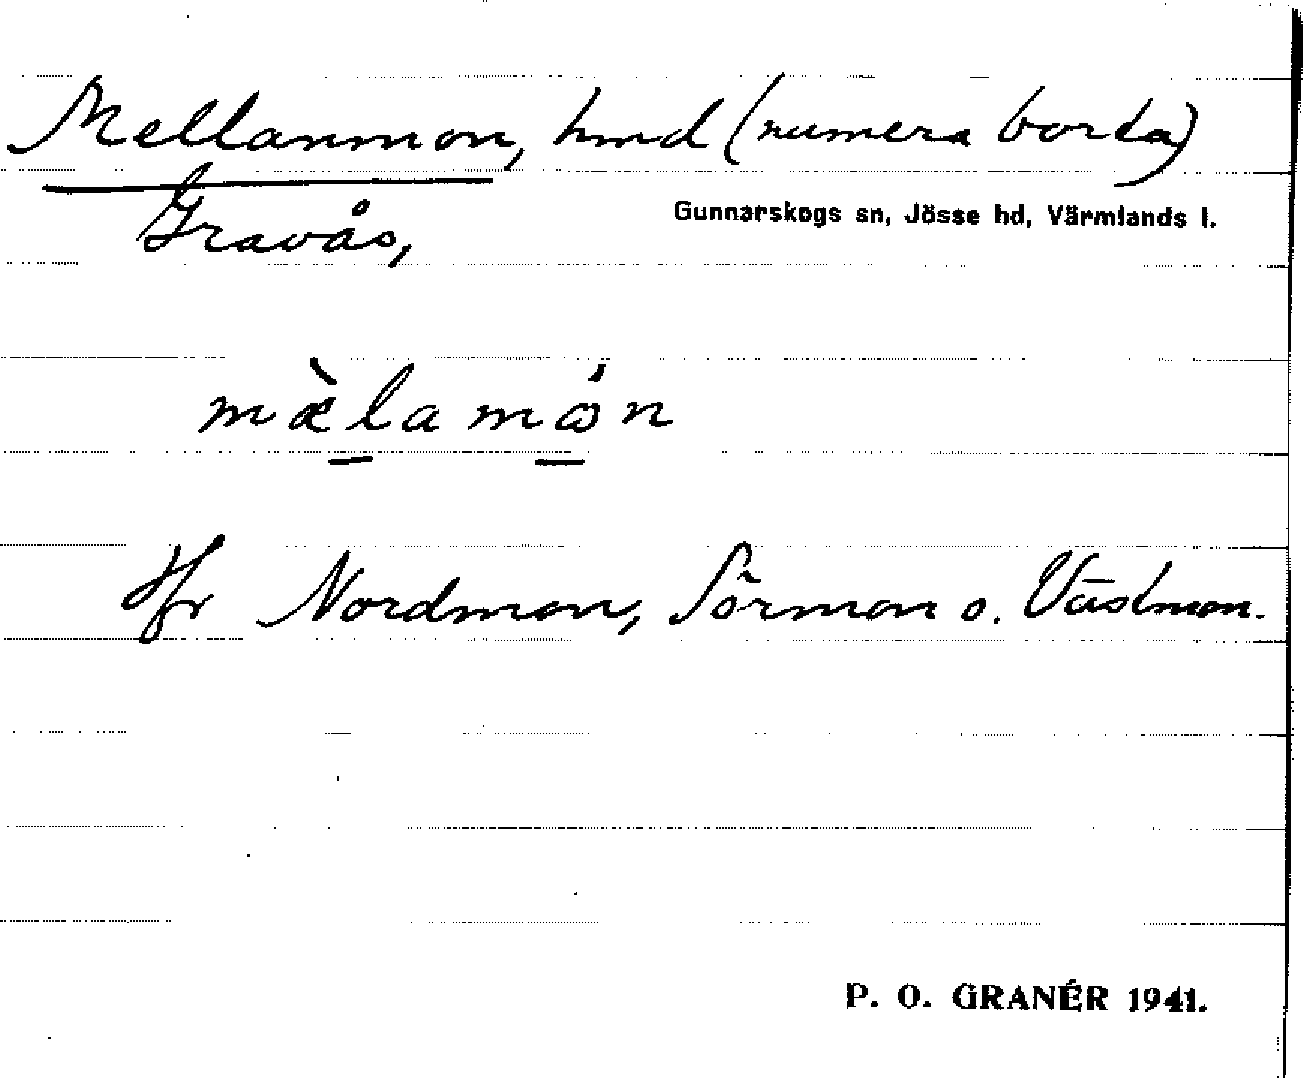 Mellanmon, hmd (numera borta)
Gravås, Gunnarskogs sn, Jösse hd, Värmlands l.
mæ̀lamón
Jfr Nordmon, Sörmon o. Västmon.
P. O. GRANÉR 1941.